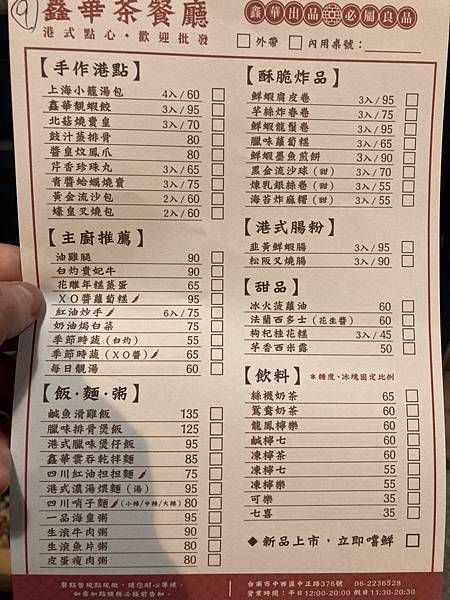 9
鑫華茶餐廳
鑫華出品 必屬良品
港式點心·歡迎批發
外帶 內用桌號：
【手作港點】
上海小籠湯包 4入/60
鑫華靚蝦餃 3入/95
北菇燒賣皇 3入/70
鼓汁蒸排骨 80
醬皇炆鳳爪 80
芹香珍珠丸 3入/65
青醬蛤蠣燒賣 3入/75
黃金流沙包 2入/60
蠔皇叉燒包 2入/60
【主廚推薦】
油雞腿 90
白灼貴妃牛 90
花雕年糕蒸蛋 65
XO醬蘿蔔糕 95
紅油炒手 6入/75
奶油焗白菜 75
季節時蔬(白灼) 55
季節時蔬(XO醬) 65
每日靚湯 60
【飯·麵·粥】
鹹魚滑雞飯 135
臘味排骨煲飯 125
港式臘味煲仔飯 95
鑫華雲吞乾拌麵 85
四川紅油担担麵 75
港式濃湯煨麵(湯) 95
四川哨子麵(小辣/中辣/大辣) 80
一品海皇粥 95
生滾牛肉粥 90
生滾魚片粥 80
皮蛋瘦肉粥 80
餐點皆現點現做，請您耐心等候。
如需加點請務必提前告知。
【酥脆炸品】
鮮蝦腐皮卷 3入/95
芋絲炸春卷 3入/75
鮮蝦龍鬚卷 3入/95
臘味蘿蔔糕 3入/65
鮮蝦墨魚煎餅 3入/90
黑金流沙球(甜) 3入/70
煉乳銀絲卷(甜) 3入/55
海苔炸麻糬(甜) 3入/55
【港式腸粉】
韭黃鮮蝦腸 3入/95
松阪叉燒腸 3入/90
【甜品】
冰火菠蘿油 60
法蘭西多士(花生醬) 60
枸杞桂花糕 3入/45
芋香西米露 50
【飲料】 ＊糖度、冰塊固定比例
絲襪奶茶 65
鴛鴦奶茶 60
龍鳳檸樂 60
鹹檸七 60
凍檸茶 60
凍檸七 55
凍檸樂 55
可樂 35
七喜 35
◆ 新品上市，立即嚐鮮
台南市中西區中正路376號 06-2236528
營業時間：平日12:00-20:00 假日11:30-20:30